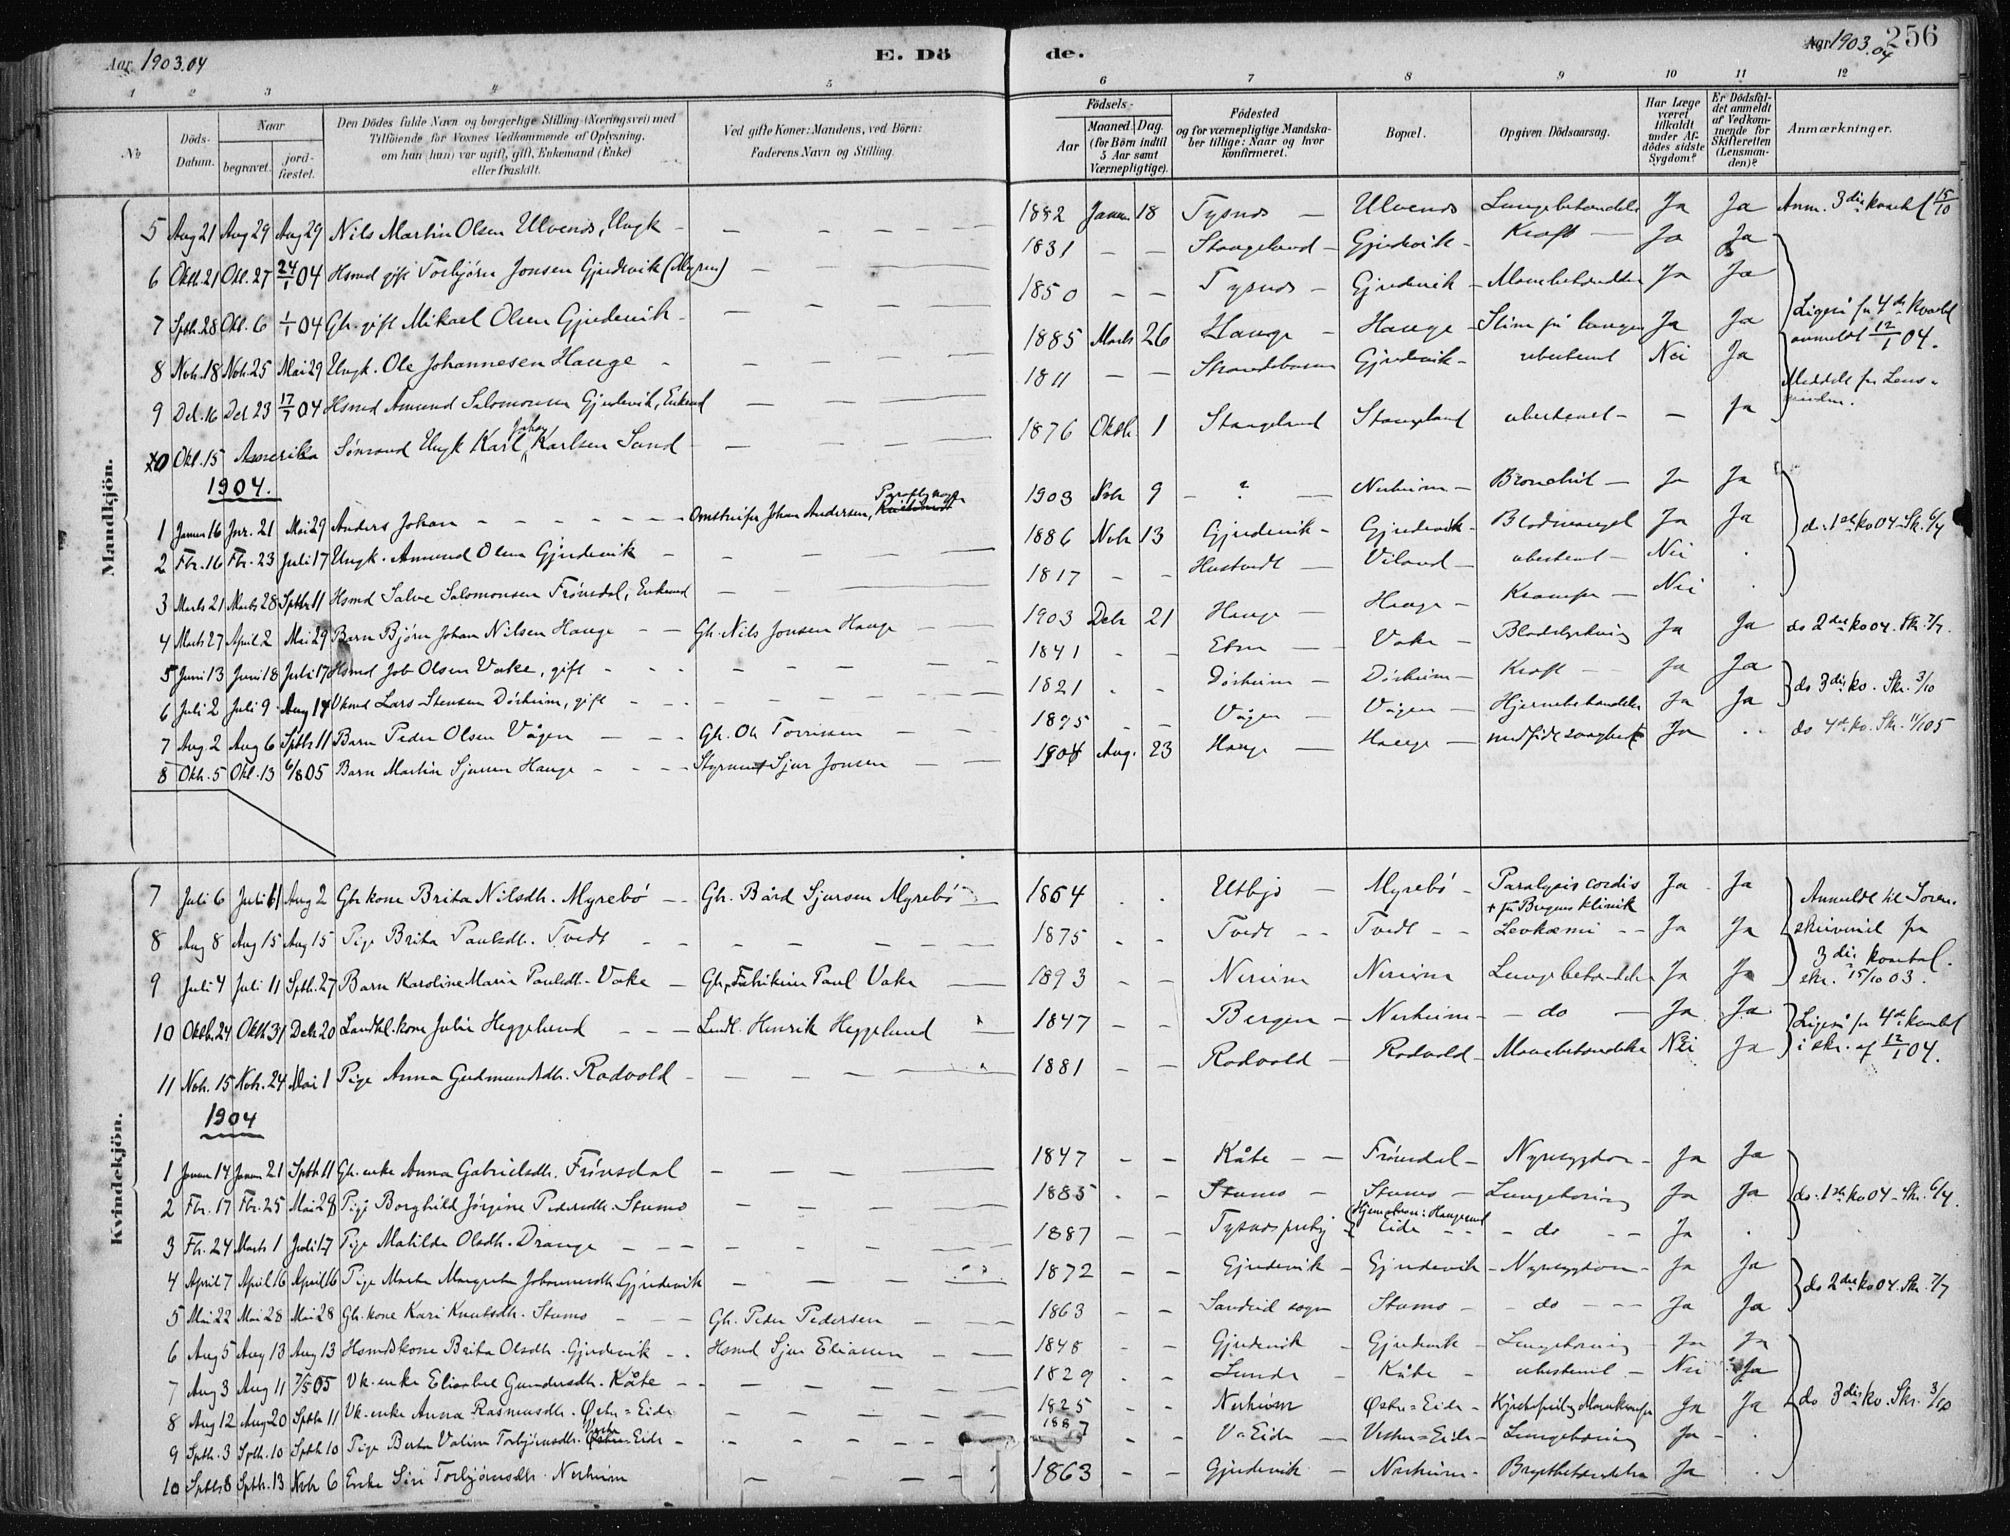 Aar 1903.04
E. Dö
de.
Aar 1903.04
256
1 2 3 4 5 6 7 8 9 10 11 12
№
Döds-Datum.
Naar
begravet.
jord-fæstet.
Den Dödes fulde Navn og borgerlige Stilling (Næringsvei) med
Tilföiende for Voxnes Vedkommende af Oplysning,
om han (hun) var ugift, gift, Enkemand (Enke)
eller fraskilt.
Ved gifte Koner: Mandens, ved Börn:
Faderens Navn og Stilling.
Födsels-
Aar
Maaned. Dag.
(for Börn indtil 5 Aar samt Værnepligtige).
Födested
og for værnepligtige Mandskaber tillige: Naar og hvor konfirmeret.
Bopæl.
Opgiven Dödsaarsag.
Har Læge været tilkaldt under Afdödes sidste Sygdom?
Er Dödsfaldet anmeldt af Vedkommende for Skifteretten (Lensmanden)?
Anmærkninger.
Mandkjön.
5 Aug 21 Aug 29 Aug 29 Nils Martin Olsen Ulvenes, Ungk - 1882 Januar 18 Tysnes - Ulvenes Lungebetændelse Ja Ja Anm. 3die kvartal 15/10
6 Oktb. 21 Okt. 27 24/1 04 Hsmd gift Torbjørn Jonsen Gjerdevik (Myren) 1831 - - Stangeland - Gjerdevik - Kræft - Ja Ja
7 Sptb. 28 Okt. 6 1/1 04 Gb. gift Mikael Olsen Gjerdevik - 1850 - - Tysnes - Gjerdevik - Mavebetændelse Ja Ja Ligeså for 4de kvartal
8 Nvb. 18 Nvb. 25 Mai 29 Ungk. Ole Johannesen Hauge - 1885 Marts 26 Hauge - Hauge - Slim på lungen Ja Ja anmeldt 12/1 04.
9 Det. 16 Det 23 17/7 04 Hsmd Amund Salomonsen Gjerdevik, Enkemd 1811 - - Gjerdevik - ubestemt Nei Ja Meddelt fra Lensmanden.
10 Okt. 15 Amerika Sönnand Ungk Karl Johan Karlsen Sand 1876 Oktb. 1 Stangeland Stangeland ubestemt - - Ja
1904.
1 Januar 16 Jnr. 21 Mai 29 Anders Johan - - Omstreifer Johan Andersen, 1903 Nvb 9 - ? - Nerheim - Bronchit - Ja Ja
2 Fbr. 16 Fbr. 23 Juli 17 Ungk. Amund Olsen Gjerdevik - 1886 Nvbr 13 Gjerdevik - Gjerdevik - Blodmangel Ja Ja do. 1ste kv 04 - Skr. 6/4
3 Marts 21 Marts 28 Sptb 11 Hsmd Salve Salomonsen Frønsdal, Enkemd 1817 - - Hustvedt - Viland - ubestemt - Nei .
4 Marts 27 April 2 Mai 29 Barn Bjørn Johan Nilsen Hauge - - Gb. Nils Jonsen Hauge 1903 Debr 21 Hauge - Hauge - Krampe - Nei .
5 Juni 13 Juni 18 Juli 17 Hsmd Job Olsen Vake, gift - 1841 - - Etne - Vake - Ja Ja do 2det kv 04. Skr. 7/7.
6 Juli 2 Juli 9 Aug 14 Lars Stensen Dörheim, gift - 1821 . . Dörheim - Dörheim - Kræft - Ja Ja
7 Aug. 2 Aug 6 Sptb 11 Barn Peder Olsen Vågen - - Gb. Ole Torrisen - 1895 - - Vågen - Vågen - Hjernebetændelse Ja Ja do 3die kv. Skr. 3/10
8 Oktb. 5 Okt. 13 6/8 05 Barn Martin Sjursen Hauge - Styrmand Sjur Jonsen - 1904 Aug. 23 Hauge - Hauge - medfødt svaghed Ja .. do 4de kv. Skr. 11/1 05
Kvindekjön.
7 Juli 6 Juli 11 Aug 2 Gbr kone Brita Nilsdtr. Myrebö - Gb. Bård Sjursen Myrebö 1864 . . Utbjo - Myrebö - Paralysis cordis Ja - Ja Anmeldt til Soren-
+ på Bergens klinik
8 Aug 8 Aug 15 Aug 15 Pige Brita Paulsdtr. Tvedt - 1875 - - Tvedt - - Tvedt - - Levkæmi - - Ja Ja skriveriet for
9 Juli 4 Juli 11 Sptb. 27 Barn Karoline Marie Paulsdtr. Vake - Gb. Fabrikeier Paul Vake 1893 - - Nerheim Nerheim Lungebetændelse Ja Ja 3die kvartal. skr. 15/10 03.
10 Oktbr 24 Oktb 31 Debr 20 Landhl. kone Julie Heggelund - Landl. Henrik Heggelund 1847 - - Bergen - Nerheim - - do - Ja Ja Ligeså for 4de kvartal
11 Nvb. 15 Nvb. 24 Mai 1 Pige Anna Gudmundsdtr. Rodvold - 1881 - - Rodvold - Rodvold - Mavebetændelse Nei Ja i skr. af 12/1 04.
1904
1 Januar 14 Januar 21 Sptb 11 Gb. enke Anna Gabrielsdtr. Frönsdal 1847 - - Kåte - - Frönsdal - Nyresygdom - Ja Ja
2 Fbr. 17 Fbr. 25 Mai 28 Pige Borghild Jørgine Pedersdtr. Stumo 1885 . - Stumo - Stumo - Lungetæring Ja Ja do. 1ste kv 04 - Skr. 6/4.
3 Fb. 24 Marts 1 Juli 17 Pige Matilde Olsdtr. Drange - 1887 - - Tysnes prstgj Eide - - do - - Ja .
4 April 7 April 16 April 16 Pige Marta Margreta Johannesdtr. Gjerdevik 1872 - - Gjerdevik - Gjerdevik - Nyresygdom - Ja Ja
5 Mai 22 Mai 28 Mai 28 Gb. kone Kari Knutsdtr. Stumo - Gb. Peder Pedersen - 1863 - - Sandeid sogn Stumo - - do - - - Ja Ja do 2det kv 04 Skr. 7/7
6 Aug 5 Aug 13 Aug 13 Hsmds kone Brita Olsdtr. Gjerdevik - Hsmd Sjur Eliasen - 1848 - - Gjerdevik - Gjerdevik - Lungetæring - Ja Ja
7 Aug 3 Aug 11 7/5 05 Vk. enke Elisabet Gundersdtr. Kåte - 1829 . - Lunde - Kåte - ubestemt - Nei Ja
8 Aug 12 Aug 20 Sptb 11 Vk. enke Anna Rasmusdtr. Østre = Eide 1825 - - Nerheim Østre = Eide - Ja Ja do 3die kv. Skr. 3/10
9 Sptb. 3 Sptb. 10 Sptb 10 Pige Berta Valine Torbjørnsdtr. Vestre Eide - 1887 . - V=Eide - Vestre = Eide - Lungetæring Ja - .
10 Sptb 8 Sptb. 13 Nvbr 6 Enke Siri Torbjørnsdtr. Nerheim 1863 - - Gjerdevik - Nerheim - Brystbetændelse Ja .